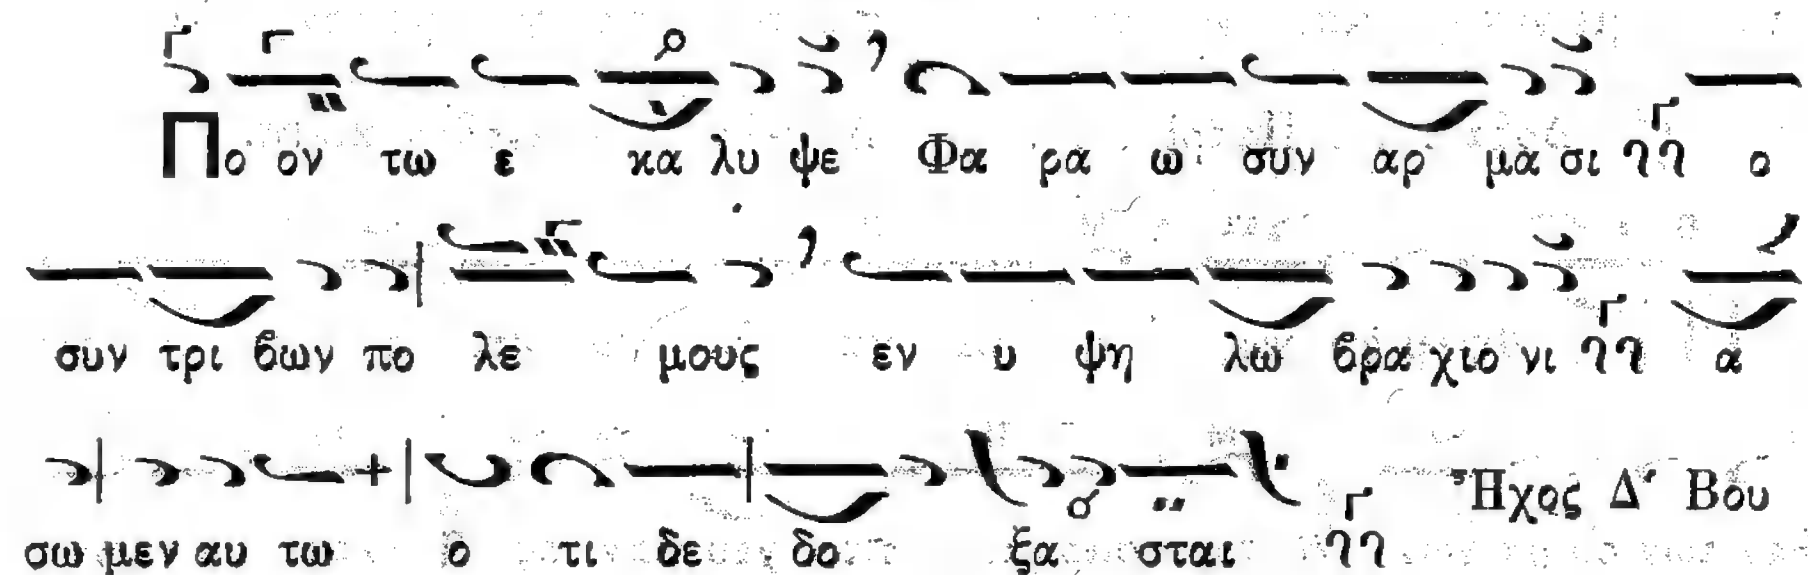 Πο ον τω ε κα λυ ψε Φα ρα ω συν αρ μα σι ο
συν τρι βων πο λε μους εν υ ψη λω βρα χιο νι α
σω μεν αυ τω ο τι δε δο ξα σται Ἦχος Δʹ Βου